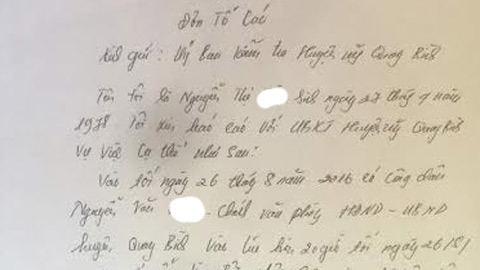 Đơn Tố Cáo
Kính gửi: Uỷ ban kiểm tra Huyện uỷ Quang Bình
Tên tôi là Nguyễn Thị sinh ngày 27 tháng 9 năm
1978 Tôi xin báo cáo với UBKT Huyện uỷ Quang Bình
Vụ Việc Cụ thể như Sau:
Vào tối ngày 26 tháng 8 năm 2016 có Công dân
Nguyễn Văn văn phòng HĐND - UBND
huyện Quang Bình Vào lúc hơn 20 giờ tối ngày 26/8/